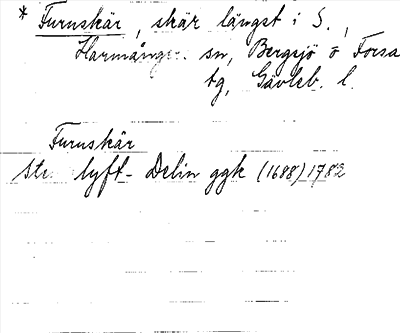 * Furuskär, skär längst i S.,
Harmånger sn, Bergsjö o Forsa
tg, Gävleb. l.
Furuskär
lyft- Delin ggk (1688) 1782